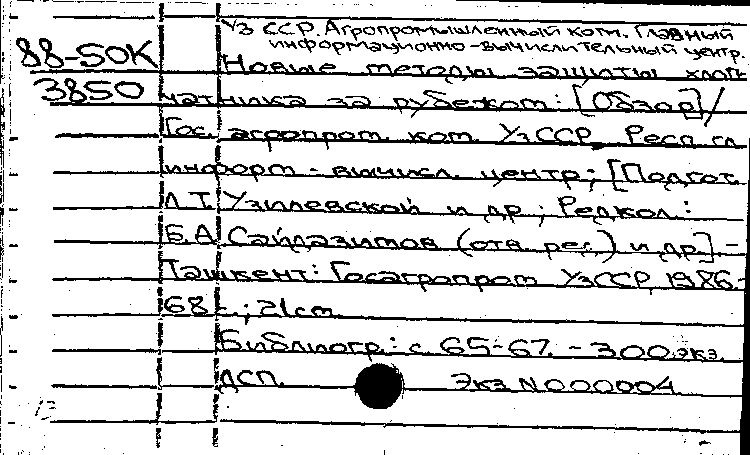 Уз ССР. Агропромышленный ком. Главный
информационно-вычислительный центр.
88-50К
Новые методы защиты хлоп-
3850
чатника за рубежом: [Обзор] /
Гос. агропром. ком. УзССР, Респ. гл.
информ.-вычисл. центр; [Подгот.
Л.Т. Узилевской и др.; Редкол.:
Б.А. Сайдазимов (отв. ред.) и др.]. -
Ташкент: Госагропром УзССР, 1986. -
68 с.; 21 см.
Библиогр.: с. 65-67. - 300 экз.
ДСП. Экз N000004
13